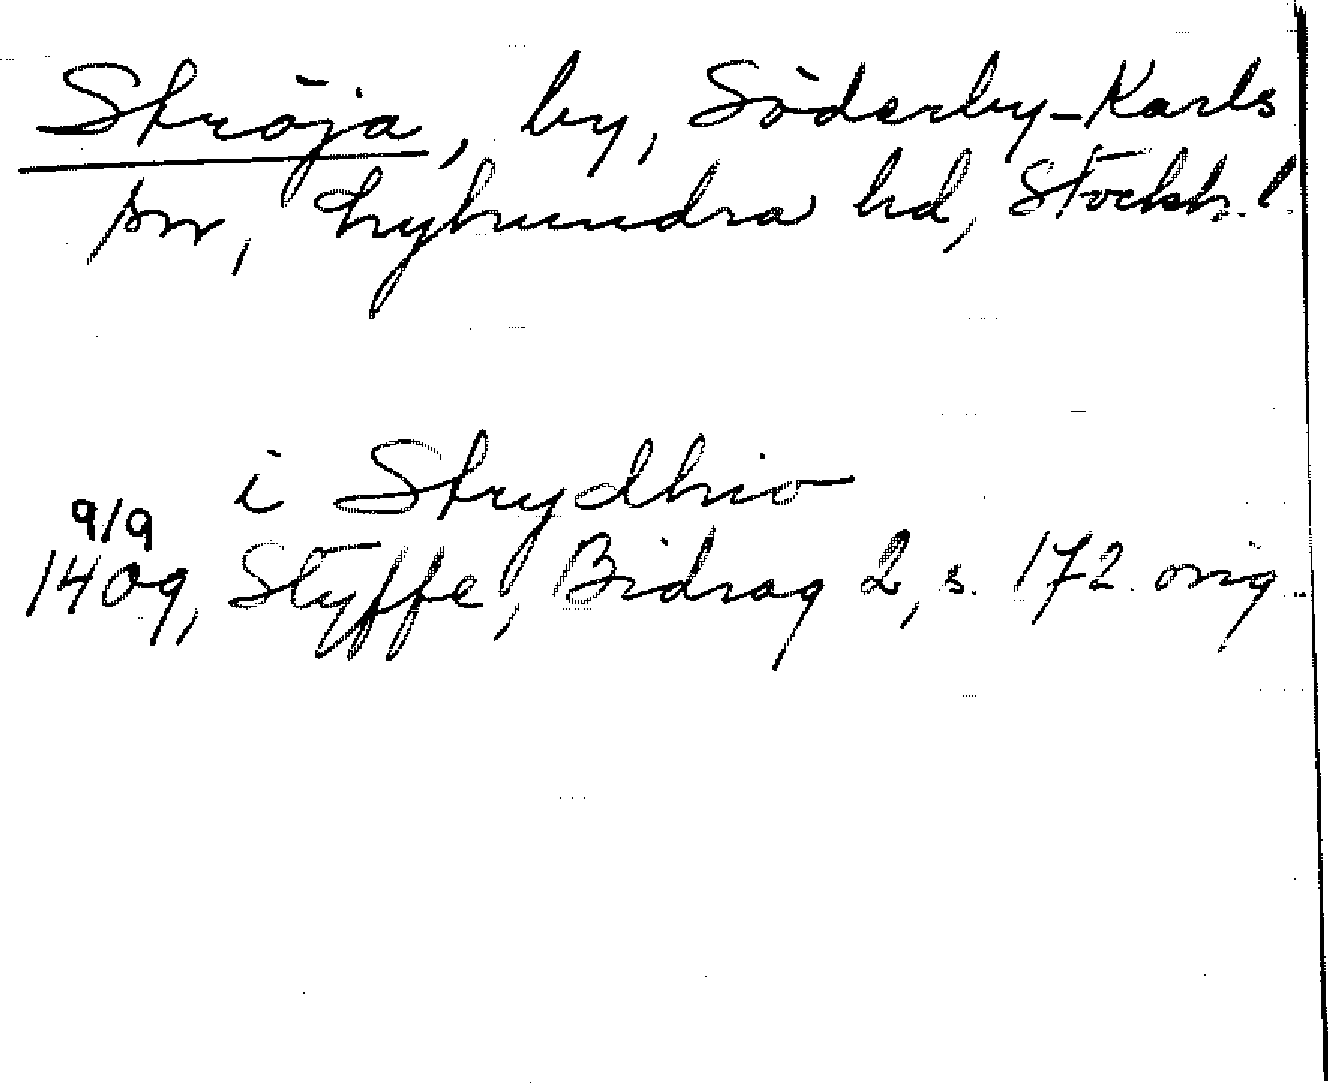 Ströja, by, Söderby-Karls
sn, Lyhundra hd, Stockh. l
i Strydhio
9/9
1409, Styffe, Bidrag 2, s. 172. orig.